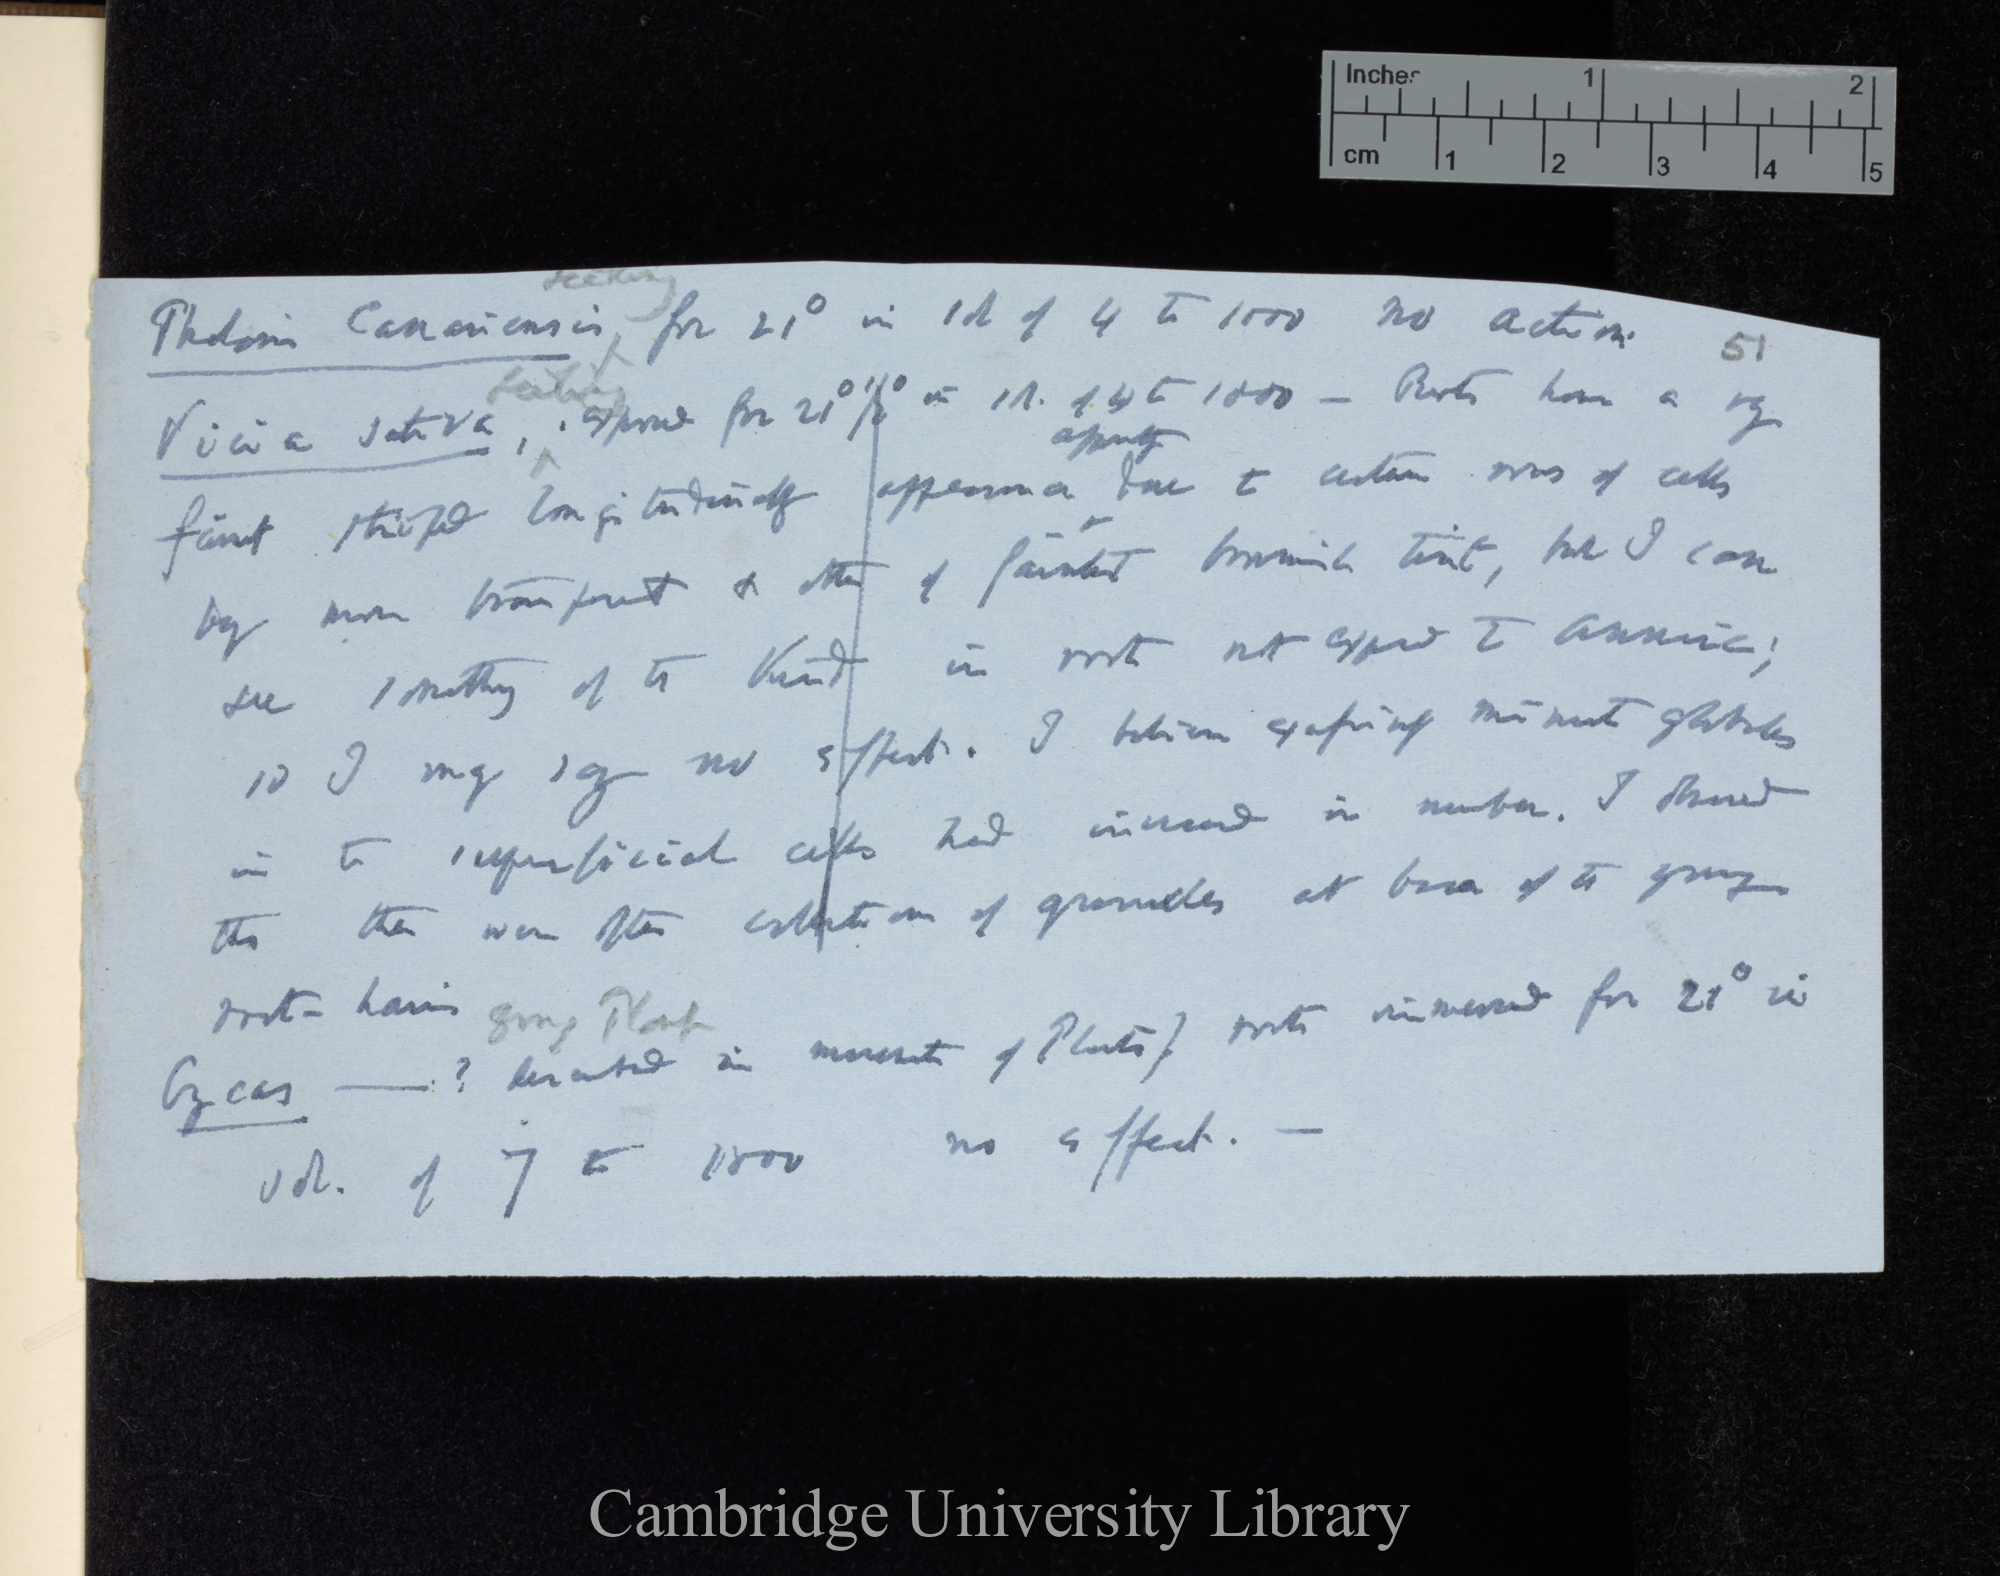 Inches 1 2
cm 1 2 3 4 5
seedling
Phalaris Canariensis, for 21° in sol of 4 to 1000 no action
51
seedling
Vicia sativa, exposed for 21° 1/2° in sol. of 4 to 1000 — Roots have a vy
apparently
faint striped longitudinally appearance due to certain rows of cells
being more transparent & other of faintest brownish tint, but I can
see something of the kind in roots not exposed to Ammonia;
so I may say no effect. I believe excessively minute globules
in the superficial cells had increased in number. I observed
that there were often collection of granules at base of the young
root-hairs
young Plant
Cycas —? keratised in  of Plants) roots immersed for 21° in
sol. of 7 to 1000 no effect. —
Cambridge University Library